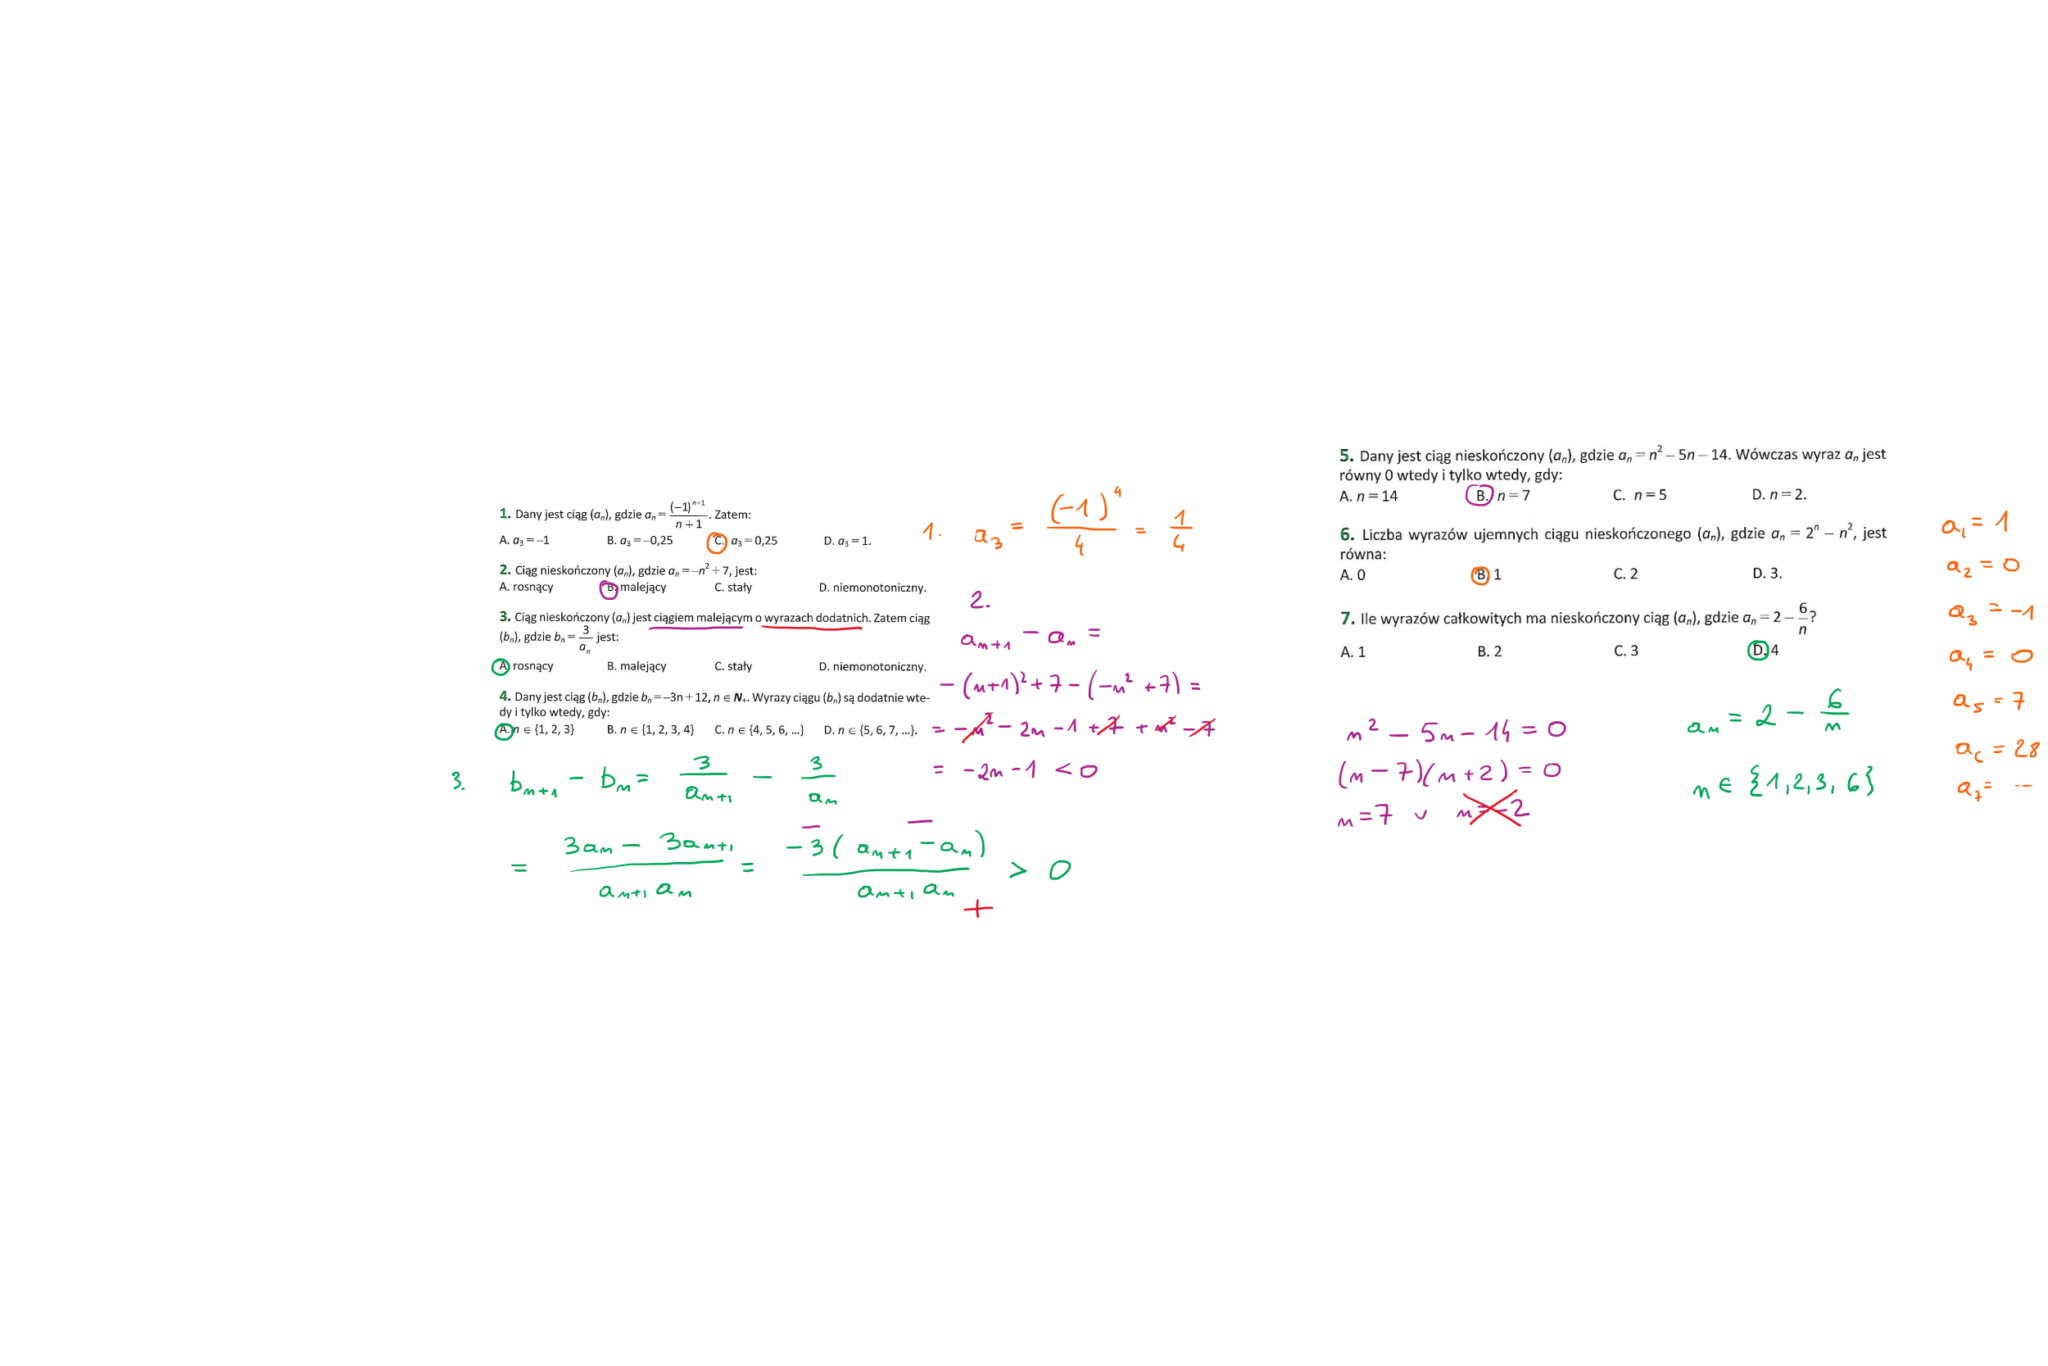 1. Dany jest ciąg (aₙ), gdzie aₙ = (−1)ⁿ⁺¹ / (n + 1). Zatem:
A. a₃ = −1 B. a₃ = −0,25 C. a₃ = 0,25 D. a₃ = 1.
2. Ciąg nieskończony (aₙ), gdzie aₙ = −n² + 7, jest:
A. rosnący B. malejący C. stały D. niemonotoniczny.
3. Ciąg nieskończony (aₙ) jest ciągiem malejącym o wyrazach dodatnich. Zatem ciąg
(bₙ), gdzie bₙ = 3 / aₙ jest:
A. rosnący B. malejący C. stały D. niemonotoniczny.
4. Dany jest ciąg (bₙ), gdzie bₙ = −3n + 12, n ∈ N₊. Wyrazy ciągu (bₙ) są dodatnie wte-
dy i tylko wtedy, gdy:
A. n ∈ {1, 2, 3} B. n ∈ {1, 2, 3, 4} C. n ∈ {4, 5, 6, ...} D. n ∈ {5, 6, 7, ...}.
3. bₙ₊₁ − bₙ = 3 / aₙ₊₁ − 3 / aₙ
= (3aₙ − 3aₙ₊₁) / (aₙ₊₁ aₙ) = −3(aₙ₊₁ − aₙ) / (aₙ₊₁ aₙ) > 0
− −
+
1. a₃ = (−1)⁴ / 4 = 1 / 4
2.
aₙ₊₁ − aₙ =
−(n+1)² + 7 − (−n² + 7) =
= −n² − 2n − 1 + 7 + n² − 7
= −2n − 1 < 0
5. Dany jest ciąg nieskończony (aₙ), gdzie aₙ = n² − 5n − 14. Wówczas wyraz aₙ jest
równy 0 wtedy i tylko wtedy, gdy:
A. n = 14 B. n = 7 C. n = 5 D. n = 2.
6. Liczba wyrazów ujemnych ciągu nieskończonego (aₙ), gdzie aₙ = 2ⁿ − n², jest
równa:
A. 0 B. 1 C. 2 D. 3.
7. Ile wyrazów całkowitych ma nieskończony ciąg (aₙ), gdzie aₙ = 2 − 6 / n?
A. 1 B. 2 C. 3 D. 4
n² − 5n − 14 = 0
(n − 7)(n + 2) = 0
n = 7 ∨ n = −2
aₙ = 2 − 6 / n
n ∈ {1, 2, 3, 6}
a₁ = 1
a₂ = 0
a₃ = −1
a₄ = 0
a₅ = 7
a₆ = 28
a₇ = ...